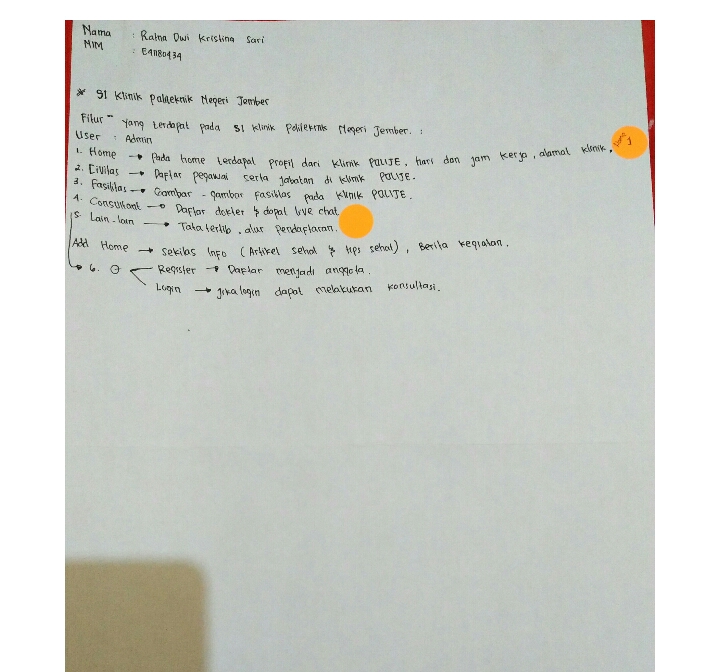 Nama : Ratna Dwi Kristina Sari
NIM : E41180434
* SI Klinik Politeknik Negeri Jember
Fitur" yang terdapat pada SI Klinik Politeknik Negeri Jember. :
User : Admin
1. Home → Pada home terdapat profil dari klinik POLIJE, hari dan jam kerja, alamat klinik,
2. Civitas → Daftar pegawai serta jabatan di klinik POLIJE.
3. Fasilitas → Gambar-gambar fasilitas pada klinik POLIJE.
4. Consultant → Daftar dokter & dapat live chat
5. Lain-lain → Tata tertib, alur pendaftaran.
Add Home → sekilas Info (Artikel sehat & tips sehat), Berita kegiatan.
6. Register → Daftar menjadi anggota.
Login → jika login dapat melakukan konsultasi.